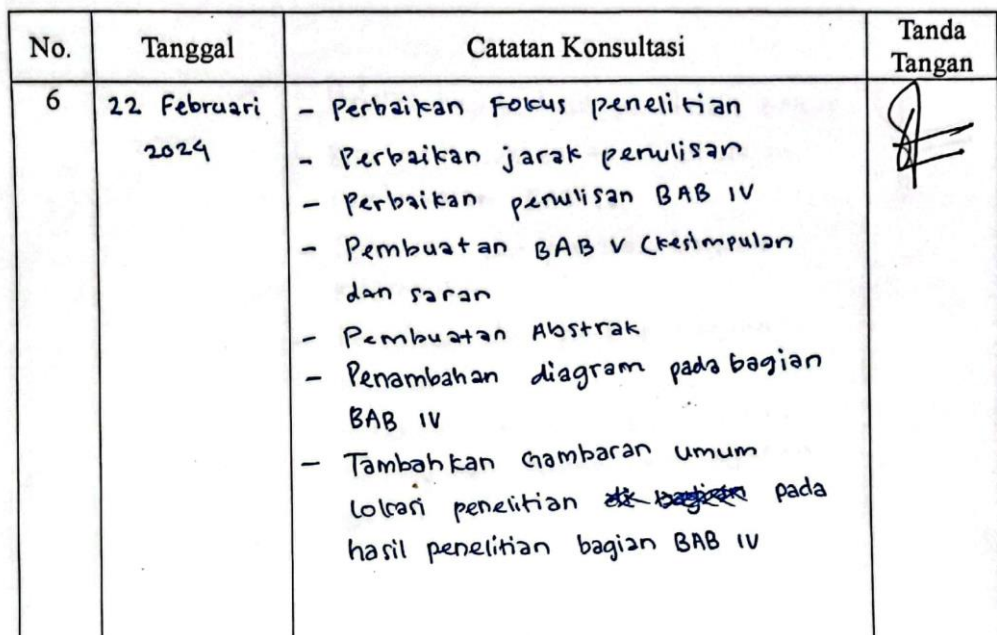 No. Tanggal Catatan Konsultasi Tanda Tangan
6 22 Februari 2024
- Perbaikan Fokus penelitian
- Perbaikan jarak penulisan
- Perbaikan penulisan BAB IV
- Pembuatan BAB V (kesimpulan
dan saran
- Pembuatan Abstrak
- Penambahan diagram pada bagian
BAB IV
- Tambahkan Gambaran umum
lokasi penelitian pada
hasil penelitian bagian BAB IV